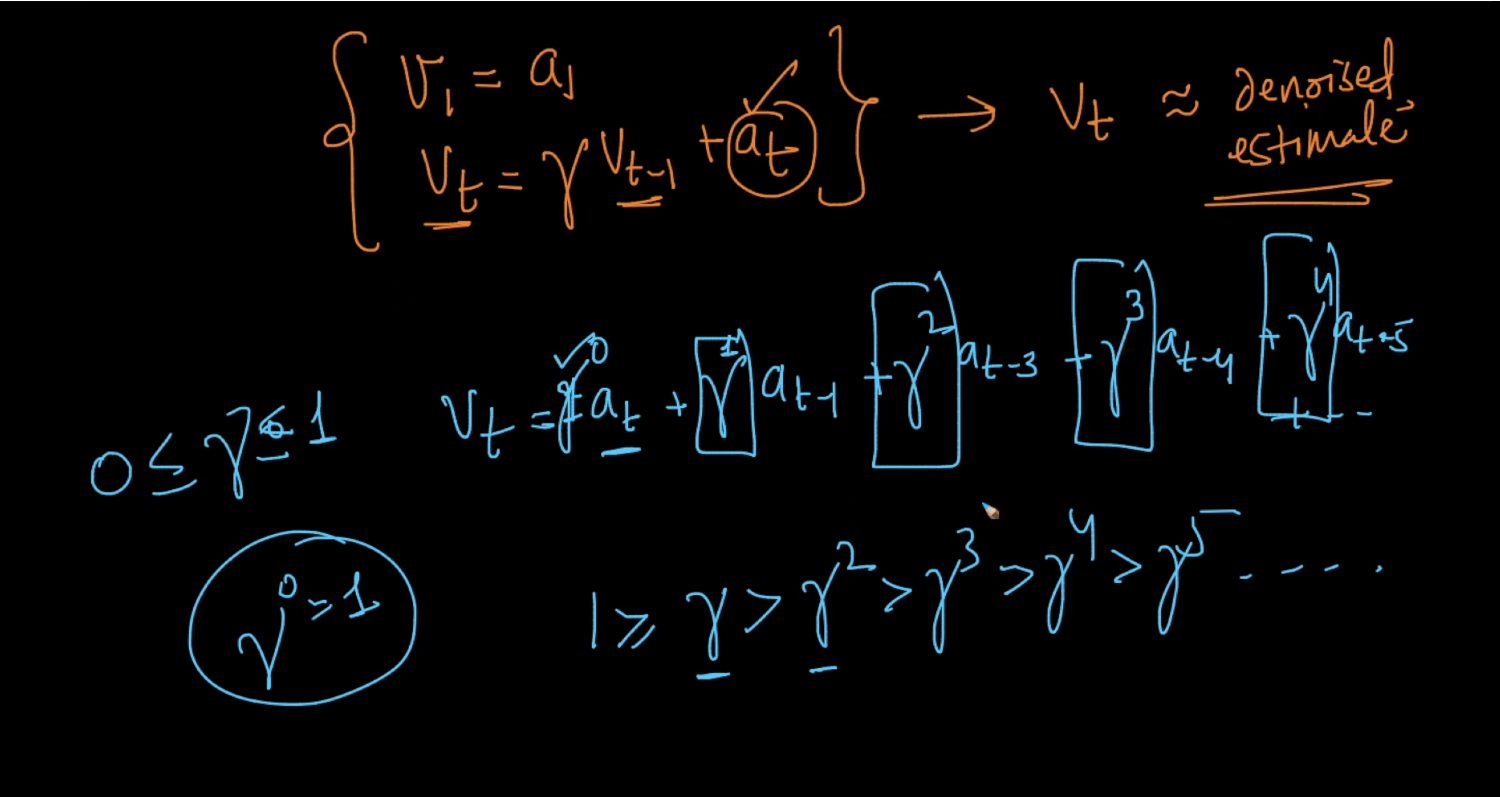 v₁ = a₁
v_t = γ v_{t-1} + a_t → v_t ≈ denoised estimate
v_t = γ⁰ a_t + γ¹ a_{t-1} + γ² a_{t-3} + γ³ a_{t-4} + γ⁴ a_{t-5} + - -
0 ≤ γ ≤ 1
1 ≥ γ > γ² > γ³ > γ⁴ > γ⁵ - - - - .
γ⁰ = 1